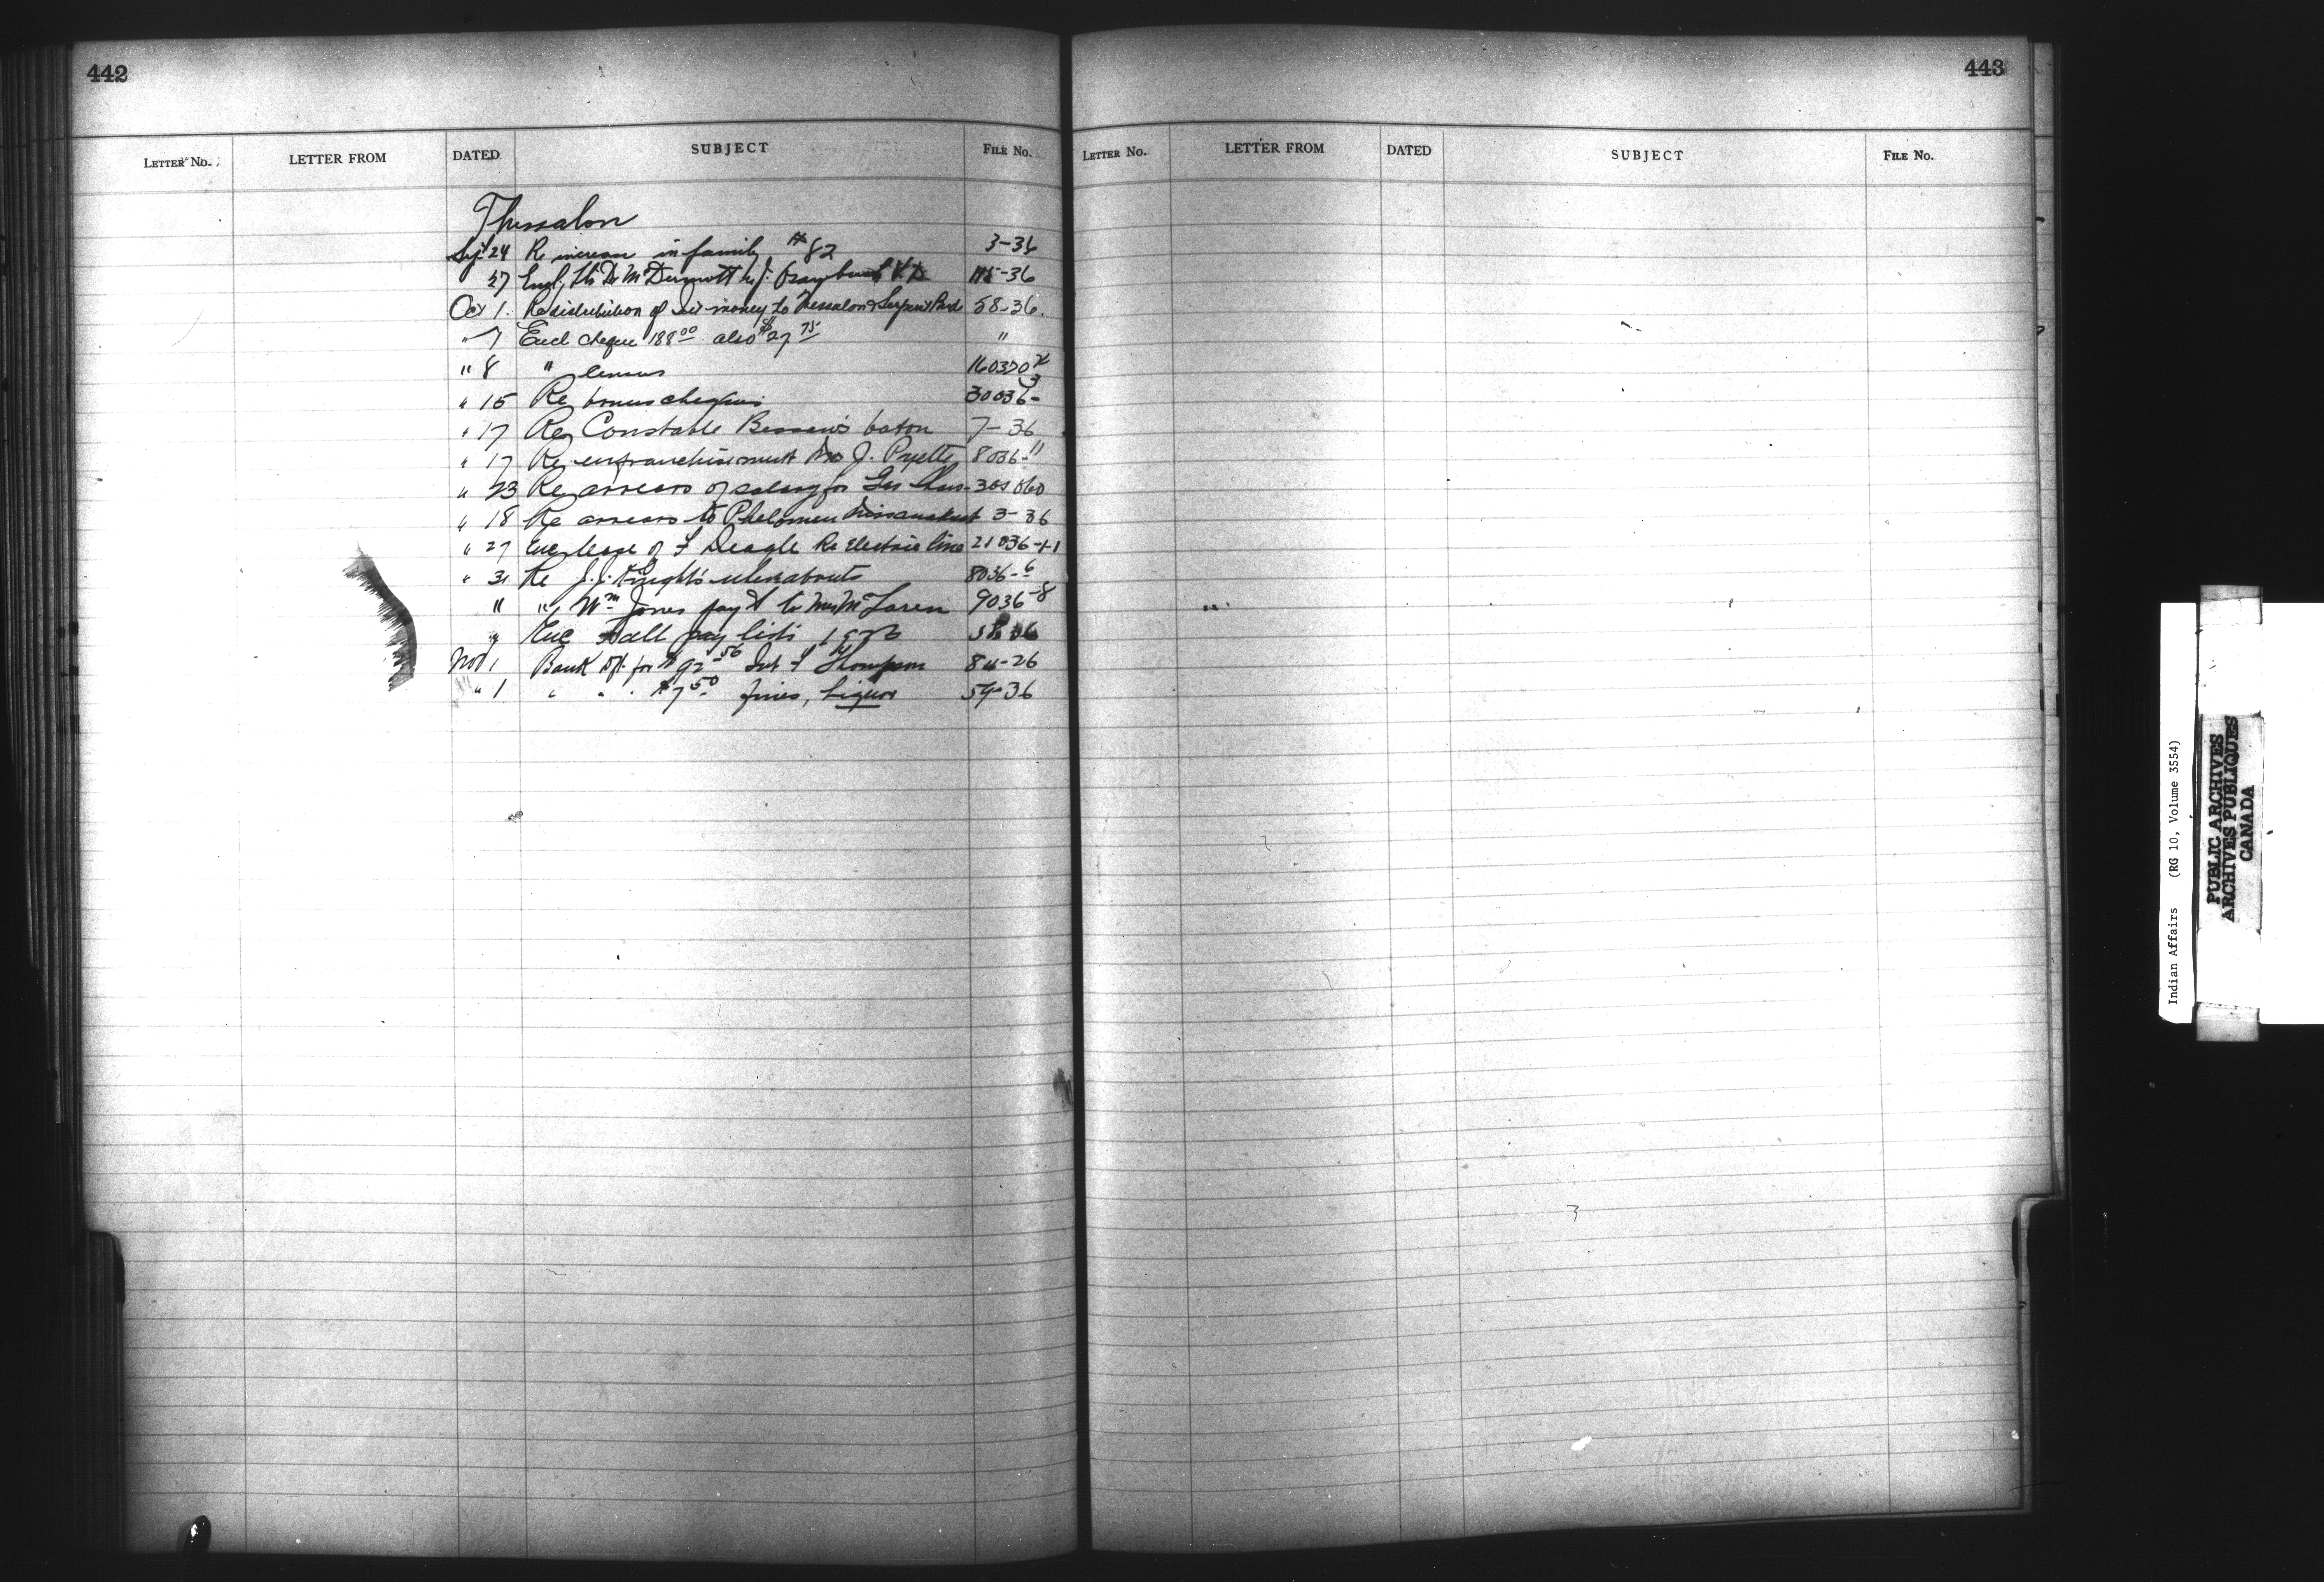 442
LETTER No. LETTER FROM DATED SUBJECT FILE No.
Thessalon
Sept 24 Re increase in family #82 3-36
27 Encl. Dr McDermott re J. 115-36
Oct 1. Re distribution of Int money to Thessalon & Serpent Band 58-36.
" 7 Encl cheque 188 00 also $27 75 "
" 8 " census 160370
" 15 Re bonus cheques 30036-3
" 17 Re Constable baton 7-36
" 17 Re enfranchisement J. Pyette 8036-11
" 23 Re arrears of salary for
" 18 Re arrears to Phelomen 3-36
" 27 Enc lease of F Deagle Re Electric line 21036-1-1
" 31 Re J.J. Knight's whereabouts 8036-6
" " Wm Jones pay't to Mrs McLaren 9036-8
" Enc Fall pay lists 1926
Nov 1 Bank Dft. for $92 56 Int F Thompson
" 1 " " " $7 50 fines, Liquor 54-36
443
LETTER No. LETTER FROM DATED SUBJECT FILE No.
Indian Affairs (RG 10, Volume 3554)
PUBLIC ARCHIVES
ARCHIVES PUBLIQUES
CANADA